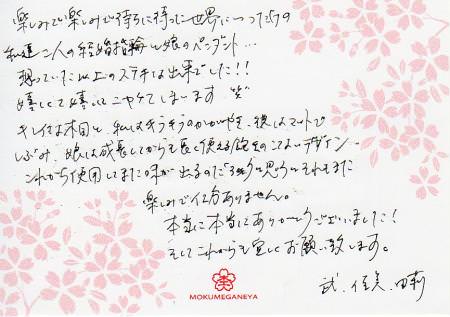 楽しみで楽しみで待ちに待った世界に一つだけの
私達二人の結婚指輪と娘のペンダント…
想っていた以上のステキな出来でした!!
嬉しくて嬉しくてニヤケてしまいます
キレイな木目と、私はキラキラのかがやき、彼はマットで
しぶみ、娘は成長してからも長く使える飽きのこないデザイン
これから使用してまた味が出るのだろうと思うとそれもまた
楽しみで仕方ありません。
本当に本当にありがとうございました!
そしてこれからも宜しくお願い致します。
武、佳美、由莉
MOKUMEGANEYA